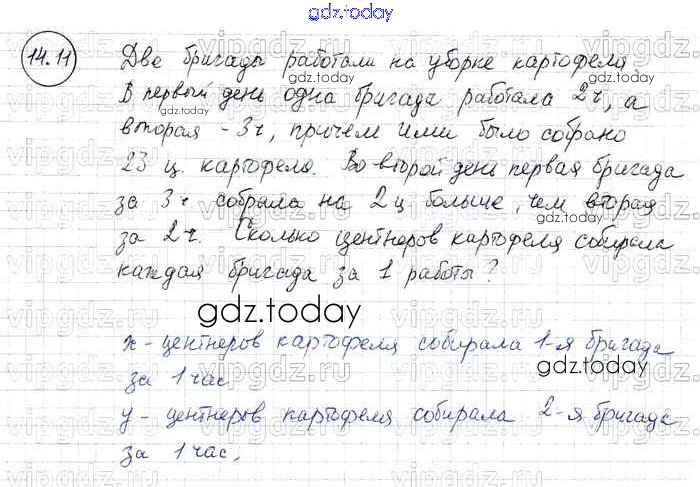 gdz.today
14.11 Две бригады работали на уборке картофеля
В первый день одна бригада работала 2ч, а
вторая - 3ч, причем ими было собрано
23 ц. картофеля. Во второй день первая бригада
за 3ч собрала на 2 ц больше, чем вторая
за 2ч. Сколько центнеров картофеля собирала
каждая бригада за 1 работы?
gdz.today
x - центнеров картофеля собирала 1-я бригада
за 1 час
y - центнеров картофеля собирала 2-я бригада
за 1 час,